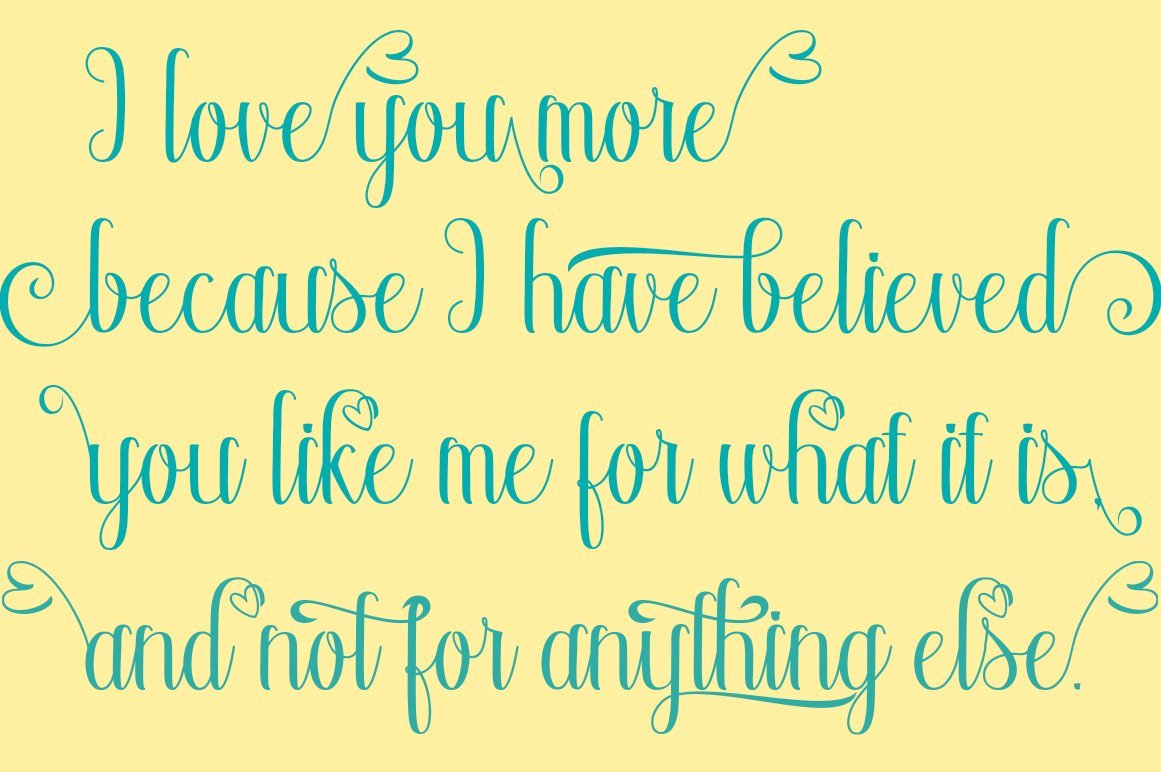 I love you more
because I have believed
you like me for what it is,
and not for anything else.